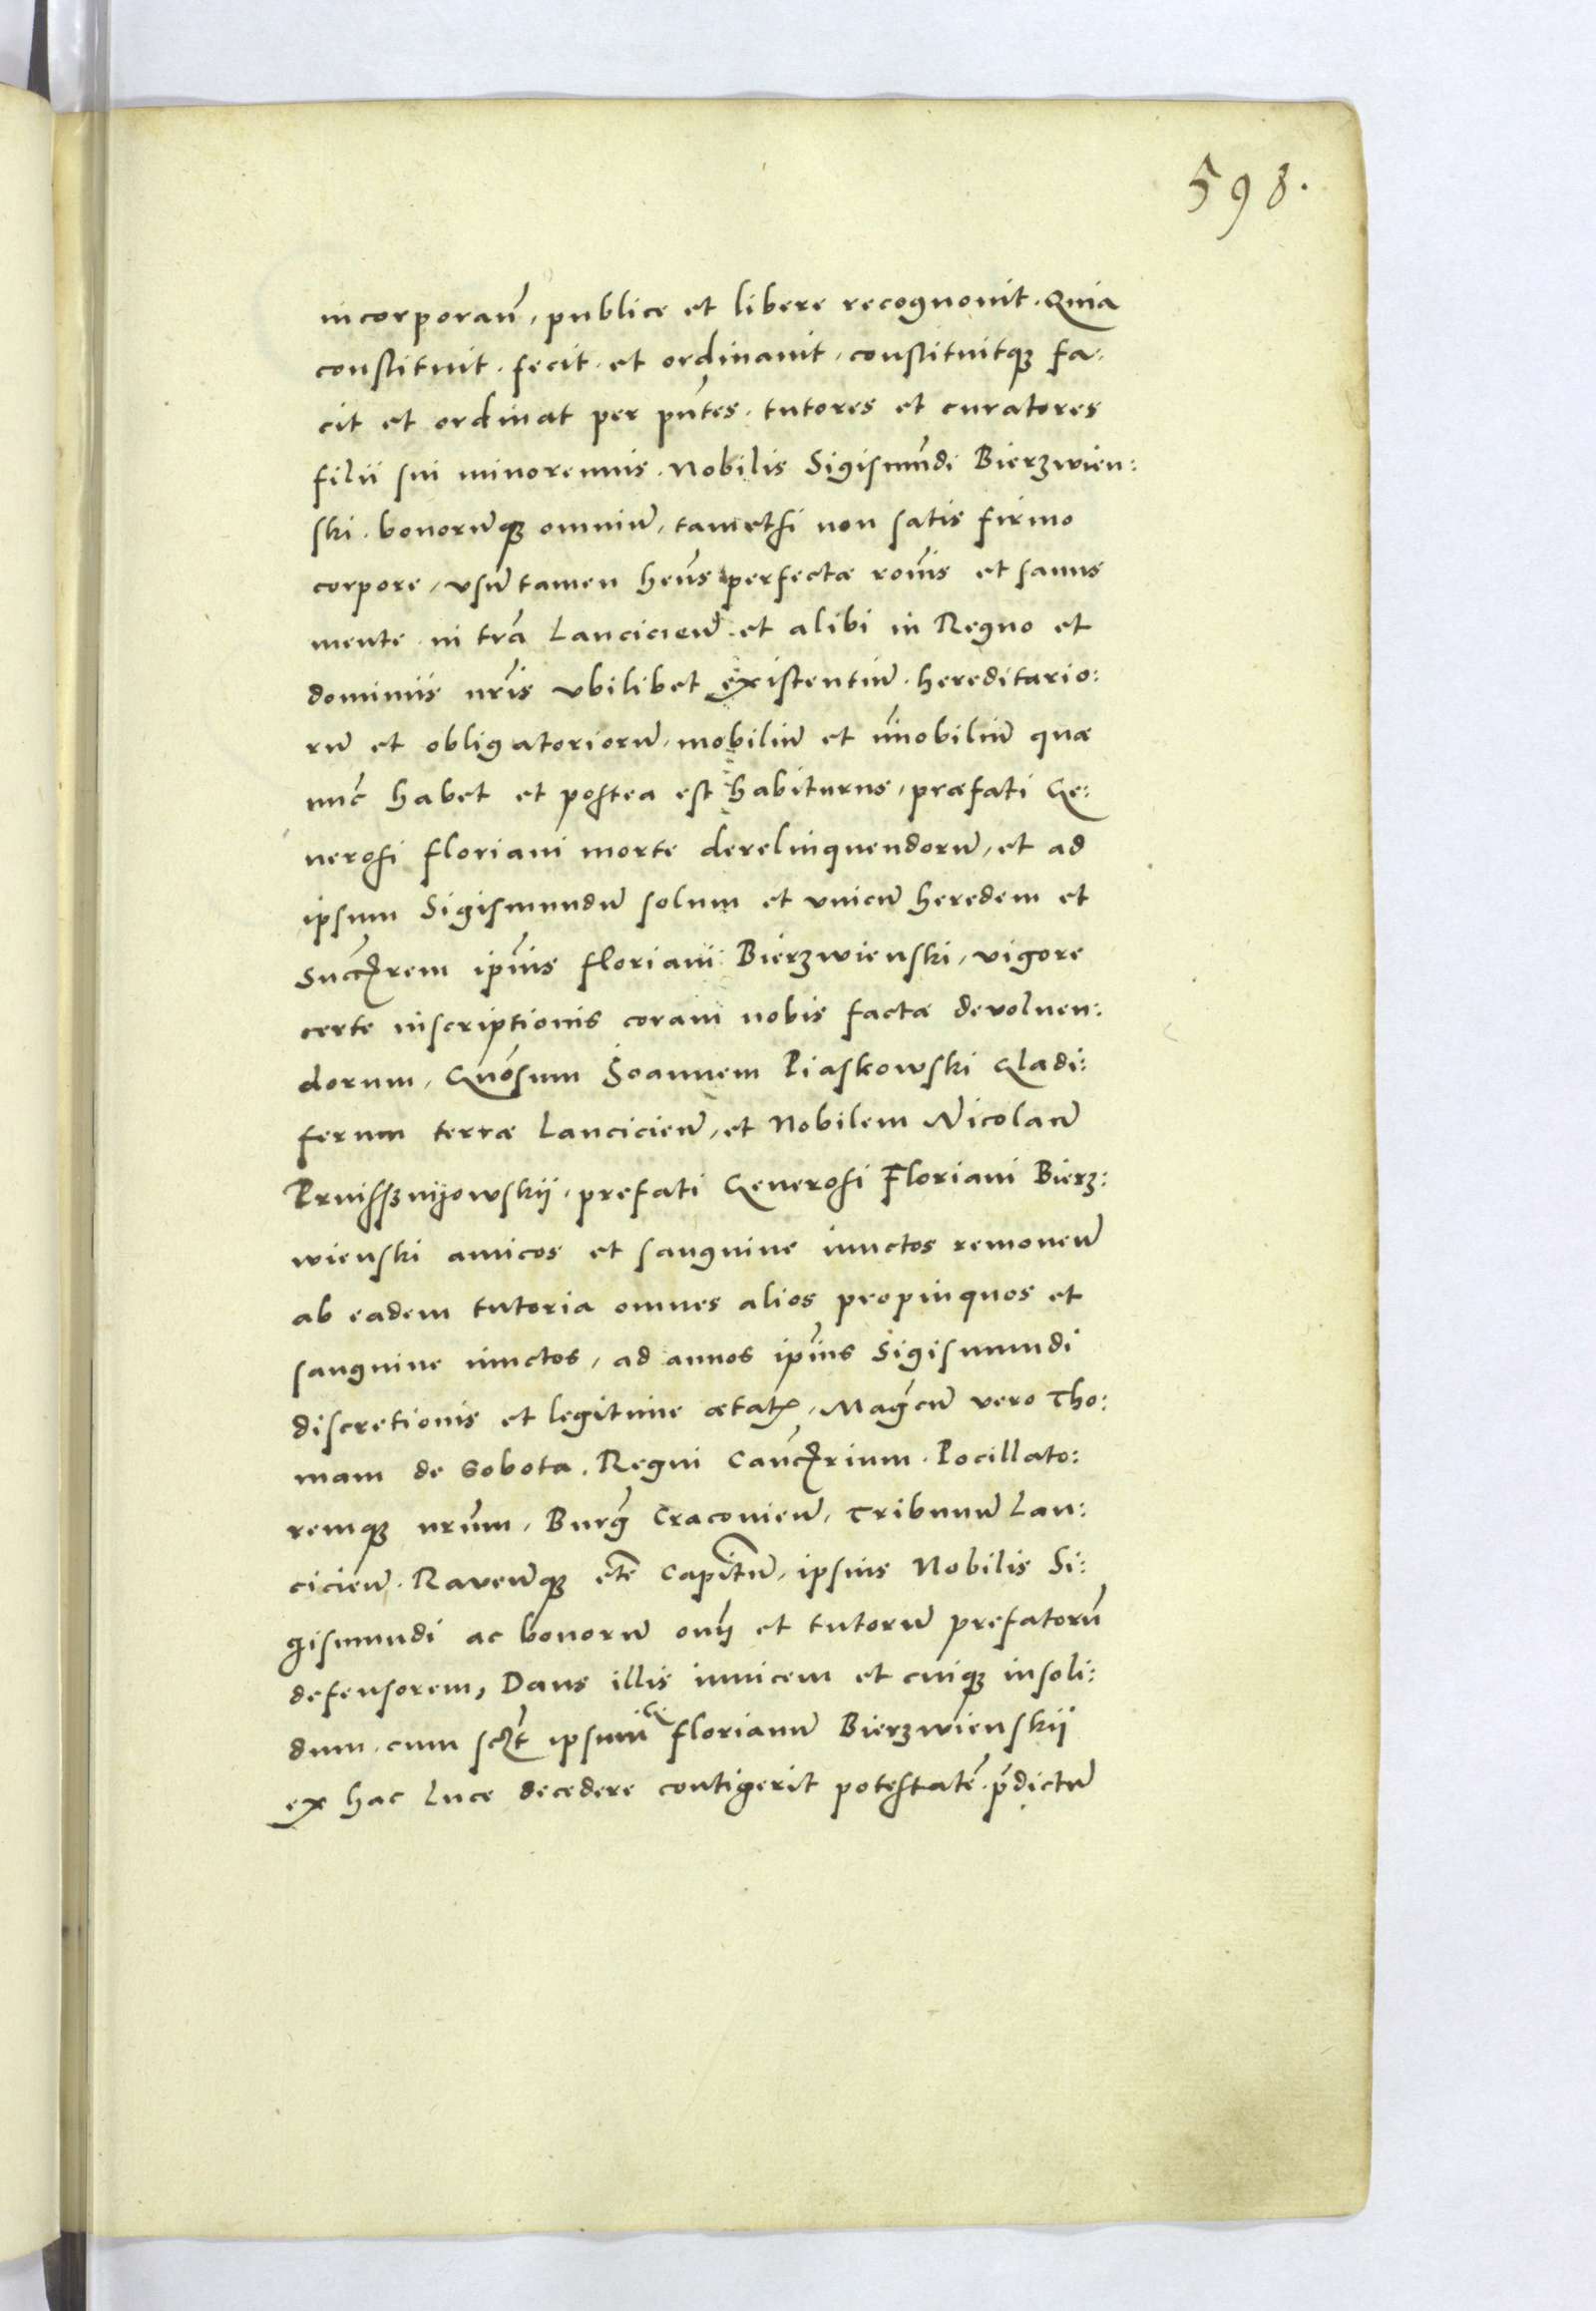 598.
incorporan̄, publice et libere recognouit. Quia
constituit. fecit. et ordinauit, constituitqȝ fa:
cit et ordinat per pn̄tes. tutores et curatores
filii sui minorennis. Nobilis Sigismūdi Bierzwien:
ski. bonorūqȝ omniū, tametsi non satis firmo
corpore, vsū tamen hen̄s perfectæ rōnis et sanus
mente. in trā Lancicień. et alibi in Regno et
dominiis nr̄is vbilibet existentiū. hereditario:
rū et obligatoriorū, mobiliū et īmobiliū quæ
nūc habet et postea est habiturus, præfati Ge:
nerosi Floriani morte derelinquendorū, et ad
ipsum Sigismundū solum et vnicū heredem et
Succrem ipīus Floriani Bierzwienski, vigore
certe inscriptionis coram nobis factæ deuoluen:
dorum, Gnōsum Joannem Piaskowski Gladi:
ferum terræ Lancicień, et Nobilem Nicolaū
Prusszÿnowskÿ, prefati Generosi Floriani Bierz:
wienski amicos et sanguine iunctos remoueń
ab eadem tutoria omnes alios propinquos et
sanguine iunctos, ad annos ipīus Sigismundi
discretionis et legitime ætatꝭ, Magcū vero Tho:
mam de Sobota. Regni Cancrium. Pocillato:
remqȝ nr̄um, Burg̃ Cracovień, Tribunū Lan:
cicień. Raveńqȝ etc̄ Capitn̄ū, ipsius Nobilis Si:
gismundi ac bonorū oīm et tutorū prefatorū
defensorem, Dans illis inuicem et cuiqȝ insoli:
dum. cum sczt ipsum G. Florianū Bierzwienskÿ
ex hac luce decedere contigerit potestatē. p̄dictū